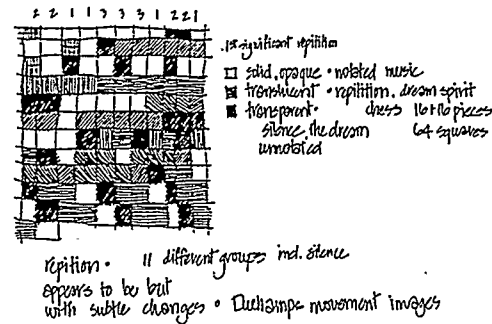 2 2 1 1 3 3 3 1 2 2 1
.1st significant repition
solid, opaque • notated music
translucent • repitition. dream spirit
transparent • chess 16+16 pieces
silence, the dream 64 squares
unnotated
repition • 11 different groups incl. silence
appears to be but
with subtle changes • Duchamps movement images